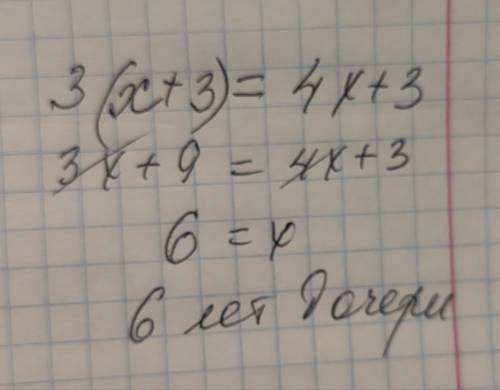 3(x+3)= 4x+3
3x+9 = 4x+3
6 = x
6 лет дочери